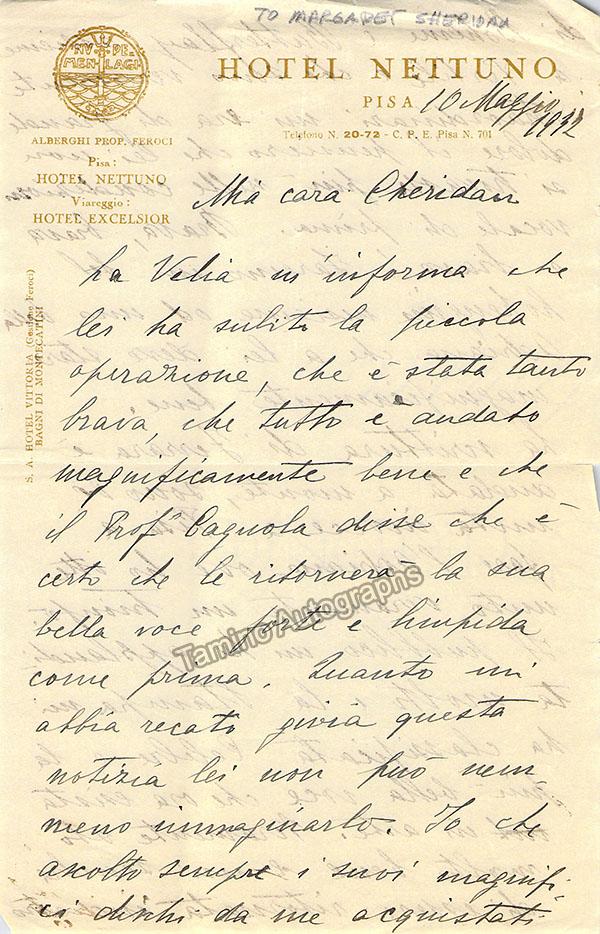 TO MARGARET SHERIDAN
NU PE
MEN LAGI
HOTEL NETTUNO
PISA 10 Maggio 1932
Telefono N. 20-72 - C. P. E. Pisa N. 701
ALBERGHI PROP. FEROCI
Pisa:
HOTEL NETTUNO
Viareggio:
HOTEL EXCELSIOR
S. A. HOTEL VITTORIA (Gestione Feroci)
BAGNI DI MONTECATINI
Mia cara Cheridan
la Velia m'informa che
lei ha subito la piccola
operazione, che è stata tanto
brava, che tutto è andato
magnificamente bene e che
il Prof. Cagnola disse che è
certo che le ritornerà la sua
bella voce forte e limpida
come prima. Quanto mi
abbia recato gioia questa
notizia lei non può nem-
meno immaginarlo. Io che
ascolto sempre i suoi magnifi-
ci dischi da me acquistati
Tamino Autographs